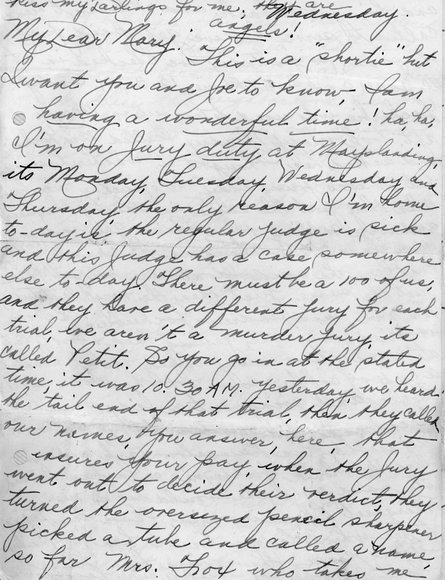 Kiss my darlings for me, they are
angels! Wednesday.
My Dear Mary: This is a "shortie" but
I want you and Joe to know, I am
having a wonderful time! ha, ha,
I'm on Jury duty at Mayslanding,
its Monday, Tuesday, Wednesday and
Thursday, the only reason I'm home
to-day is, the regular judge is sick
and this Judge has a case somewhere
else to-day. There must be a 100 of us,
and they have a different Jury for each
trial, we aren't a murder Jury, its
called Petit. So you go in at the stated
time, it was 10.30 A.M. yesterday, we heard
the tail end of that trial, then they called
our names, you answer, here, that
insures your pay, when the Jury
went out to decide their verdict, they
turned the oversized pencil sharpener
picked a tube and called a name,
so far Mrs. Fox who takes me